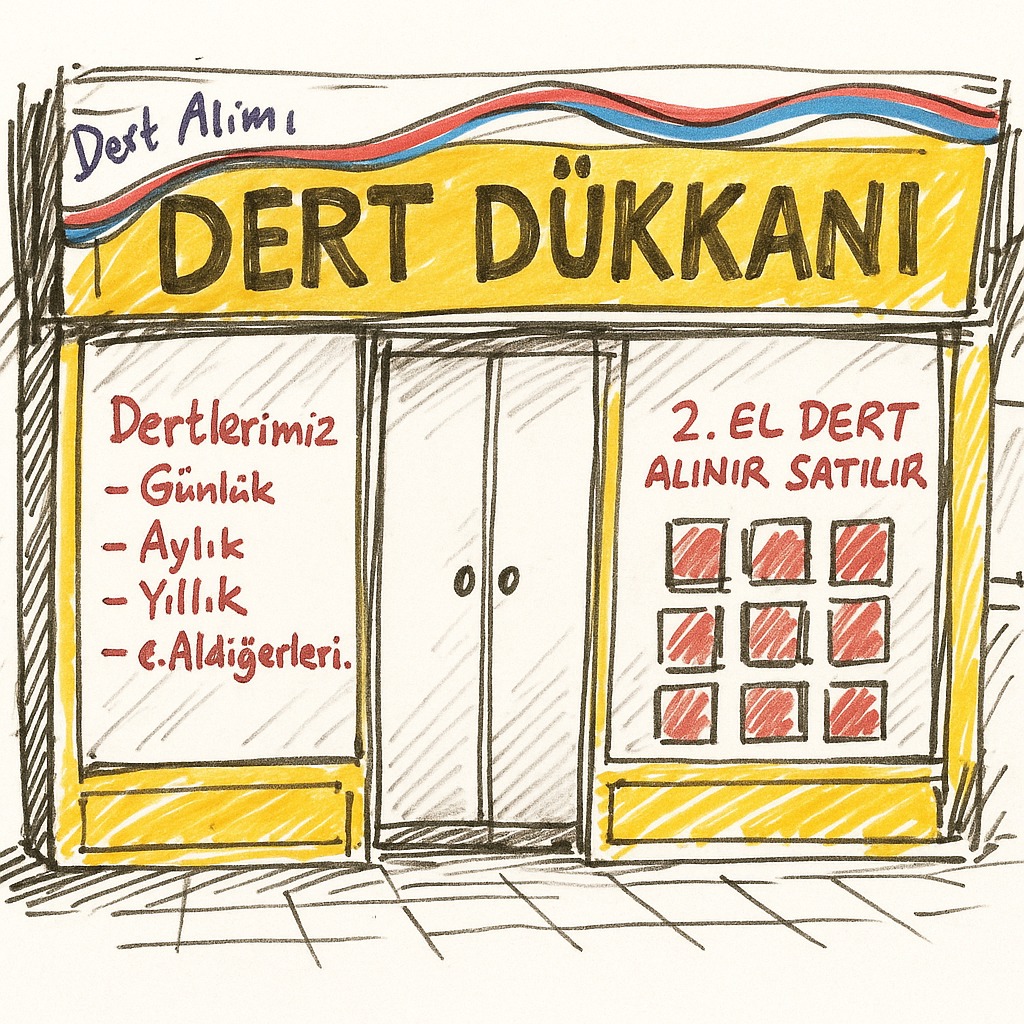 Dert Alımı
DERT DÜKKANI
Dertlerimiz
- Günlük
- Aylık
- Yıllık
- e.Aldiğerleri.
2. EL DERT
ALINIR SATILIR